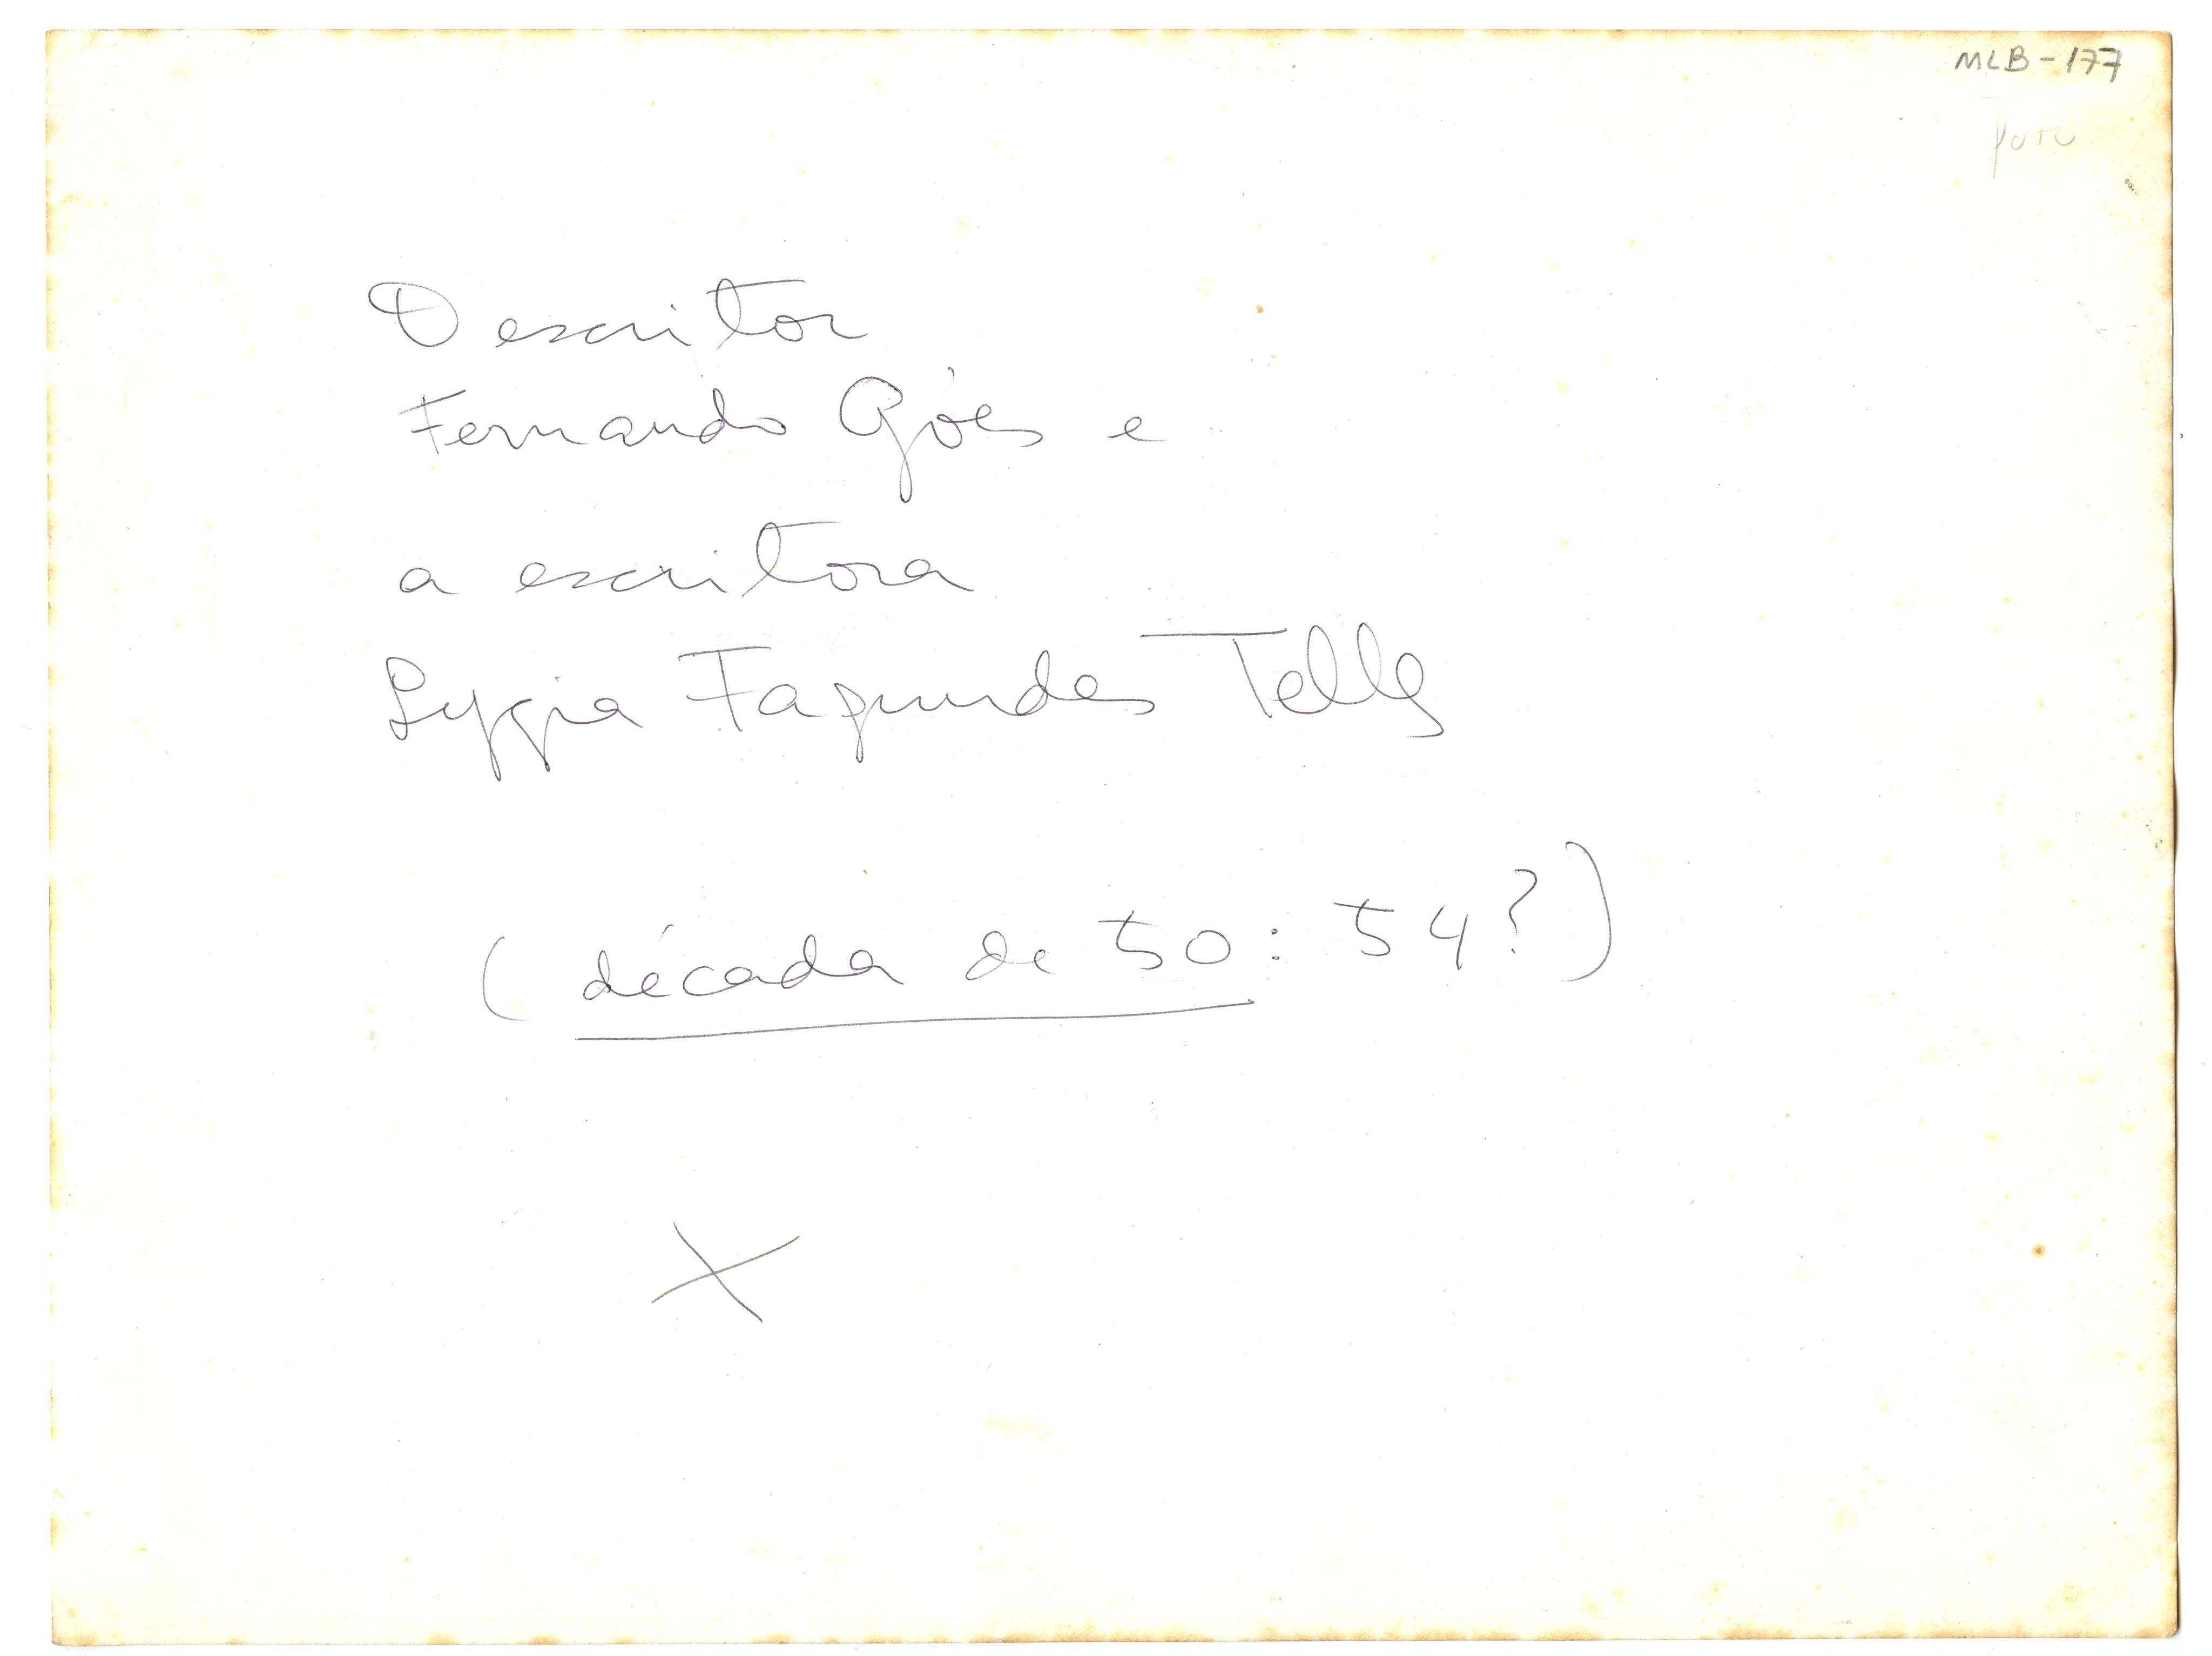 MLB-177
foto
O escritor
Fernando Góes e
a escritora
Lygia Fagundes Telles
(década de 50: 54?)
X